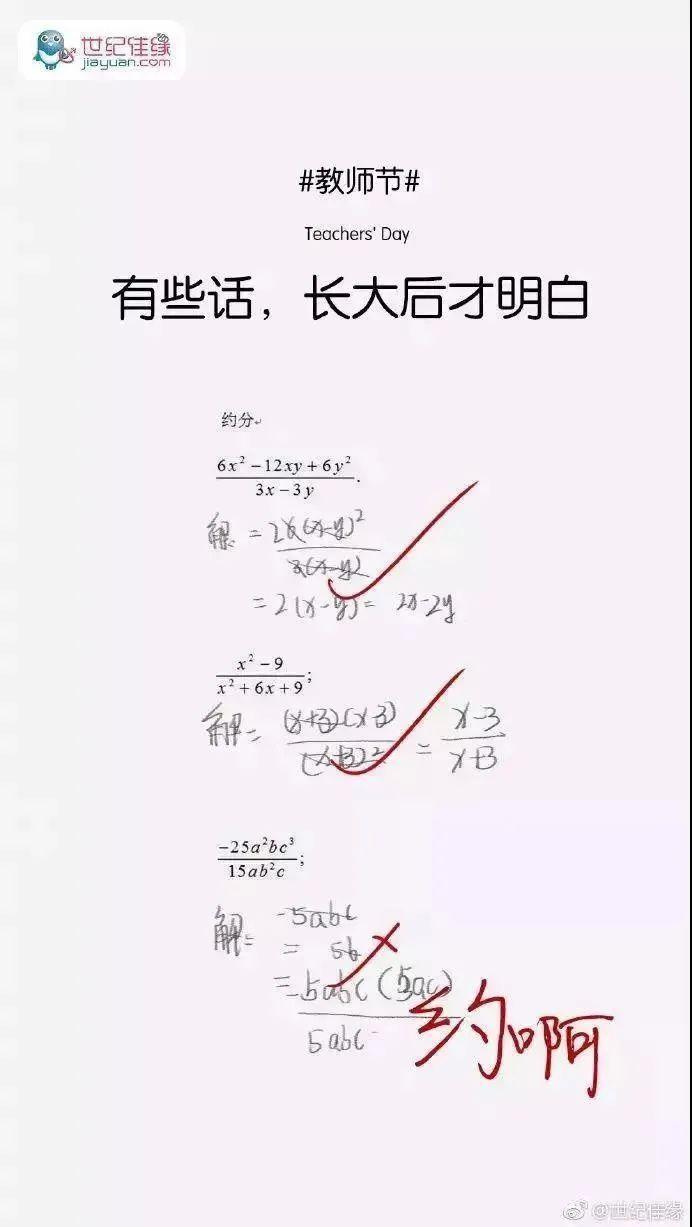 世纪佳缘
jiayuan.com
#教师节#
Teachers' Day
有些话，长大后才明白
约分
6x² −12xy + 6y²
3x −3y
解 = 2x(x-y)²
3(x-y)
= 2(x-y) = 2x-2y
x² −9
x² + 6x + 9;
解 = (x+3)(x-3)
(x+3)²
= x-3
x+3
−25a²bc³
15ab²c;
解 = -5abc
= 5b
= -5abc(5ac)
5abc
约啊
@世纪佳缘